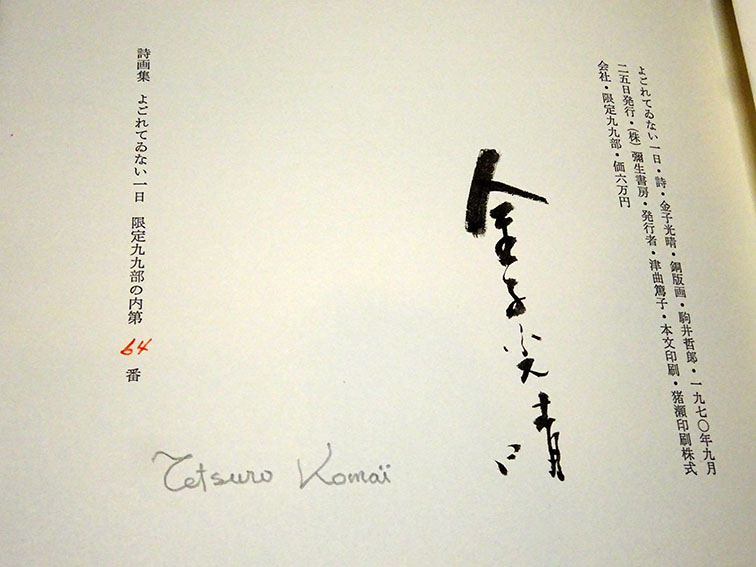 よごれてゐない一日・詩・金子光晴・銅版画・駒井哲郎・一九七〇年九月
二五日発行・(株)彌生書房・発行者・津曲篤子・本文印刷・猪瀬印刷株式
会社・限定九九部・価六万円
金子光晴
詩画集 よごれてゐない一日 限定九九部の内第 64 番
Tetsuro Komaï